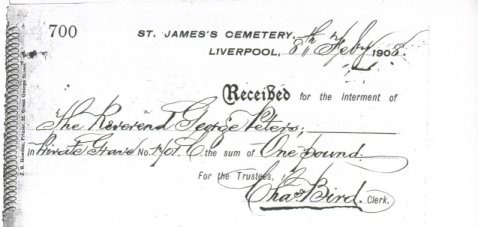 700
ST. JAMES'S CEMETERY,
LIVERPOOL, 8th Feby 1908.
Received for the Interment of
The Reverend George Peters,
in Private Grave No. the sum of One pound.
For the Trustees,
Chas Bird. Clerk.